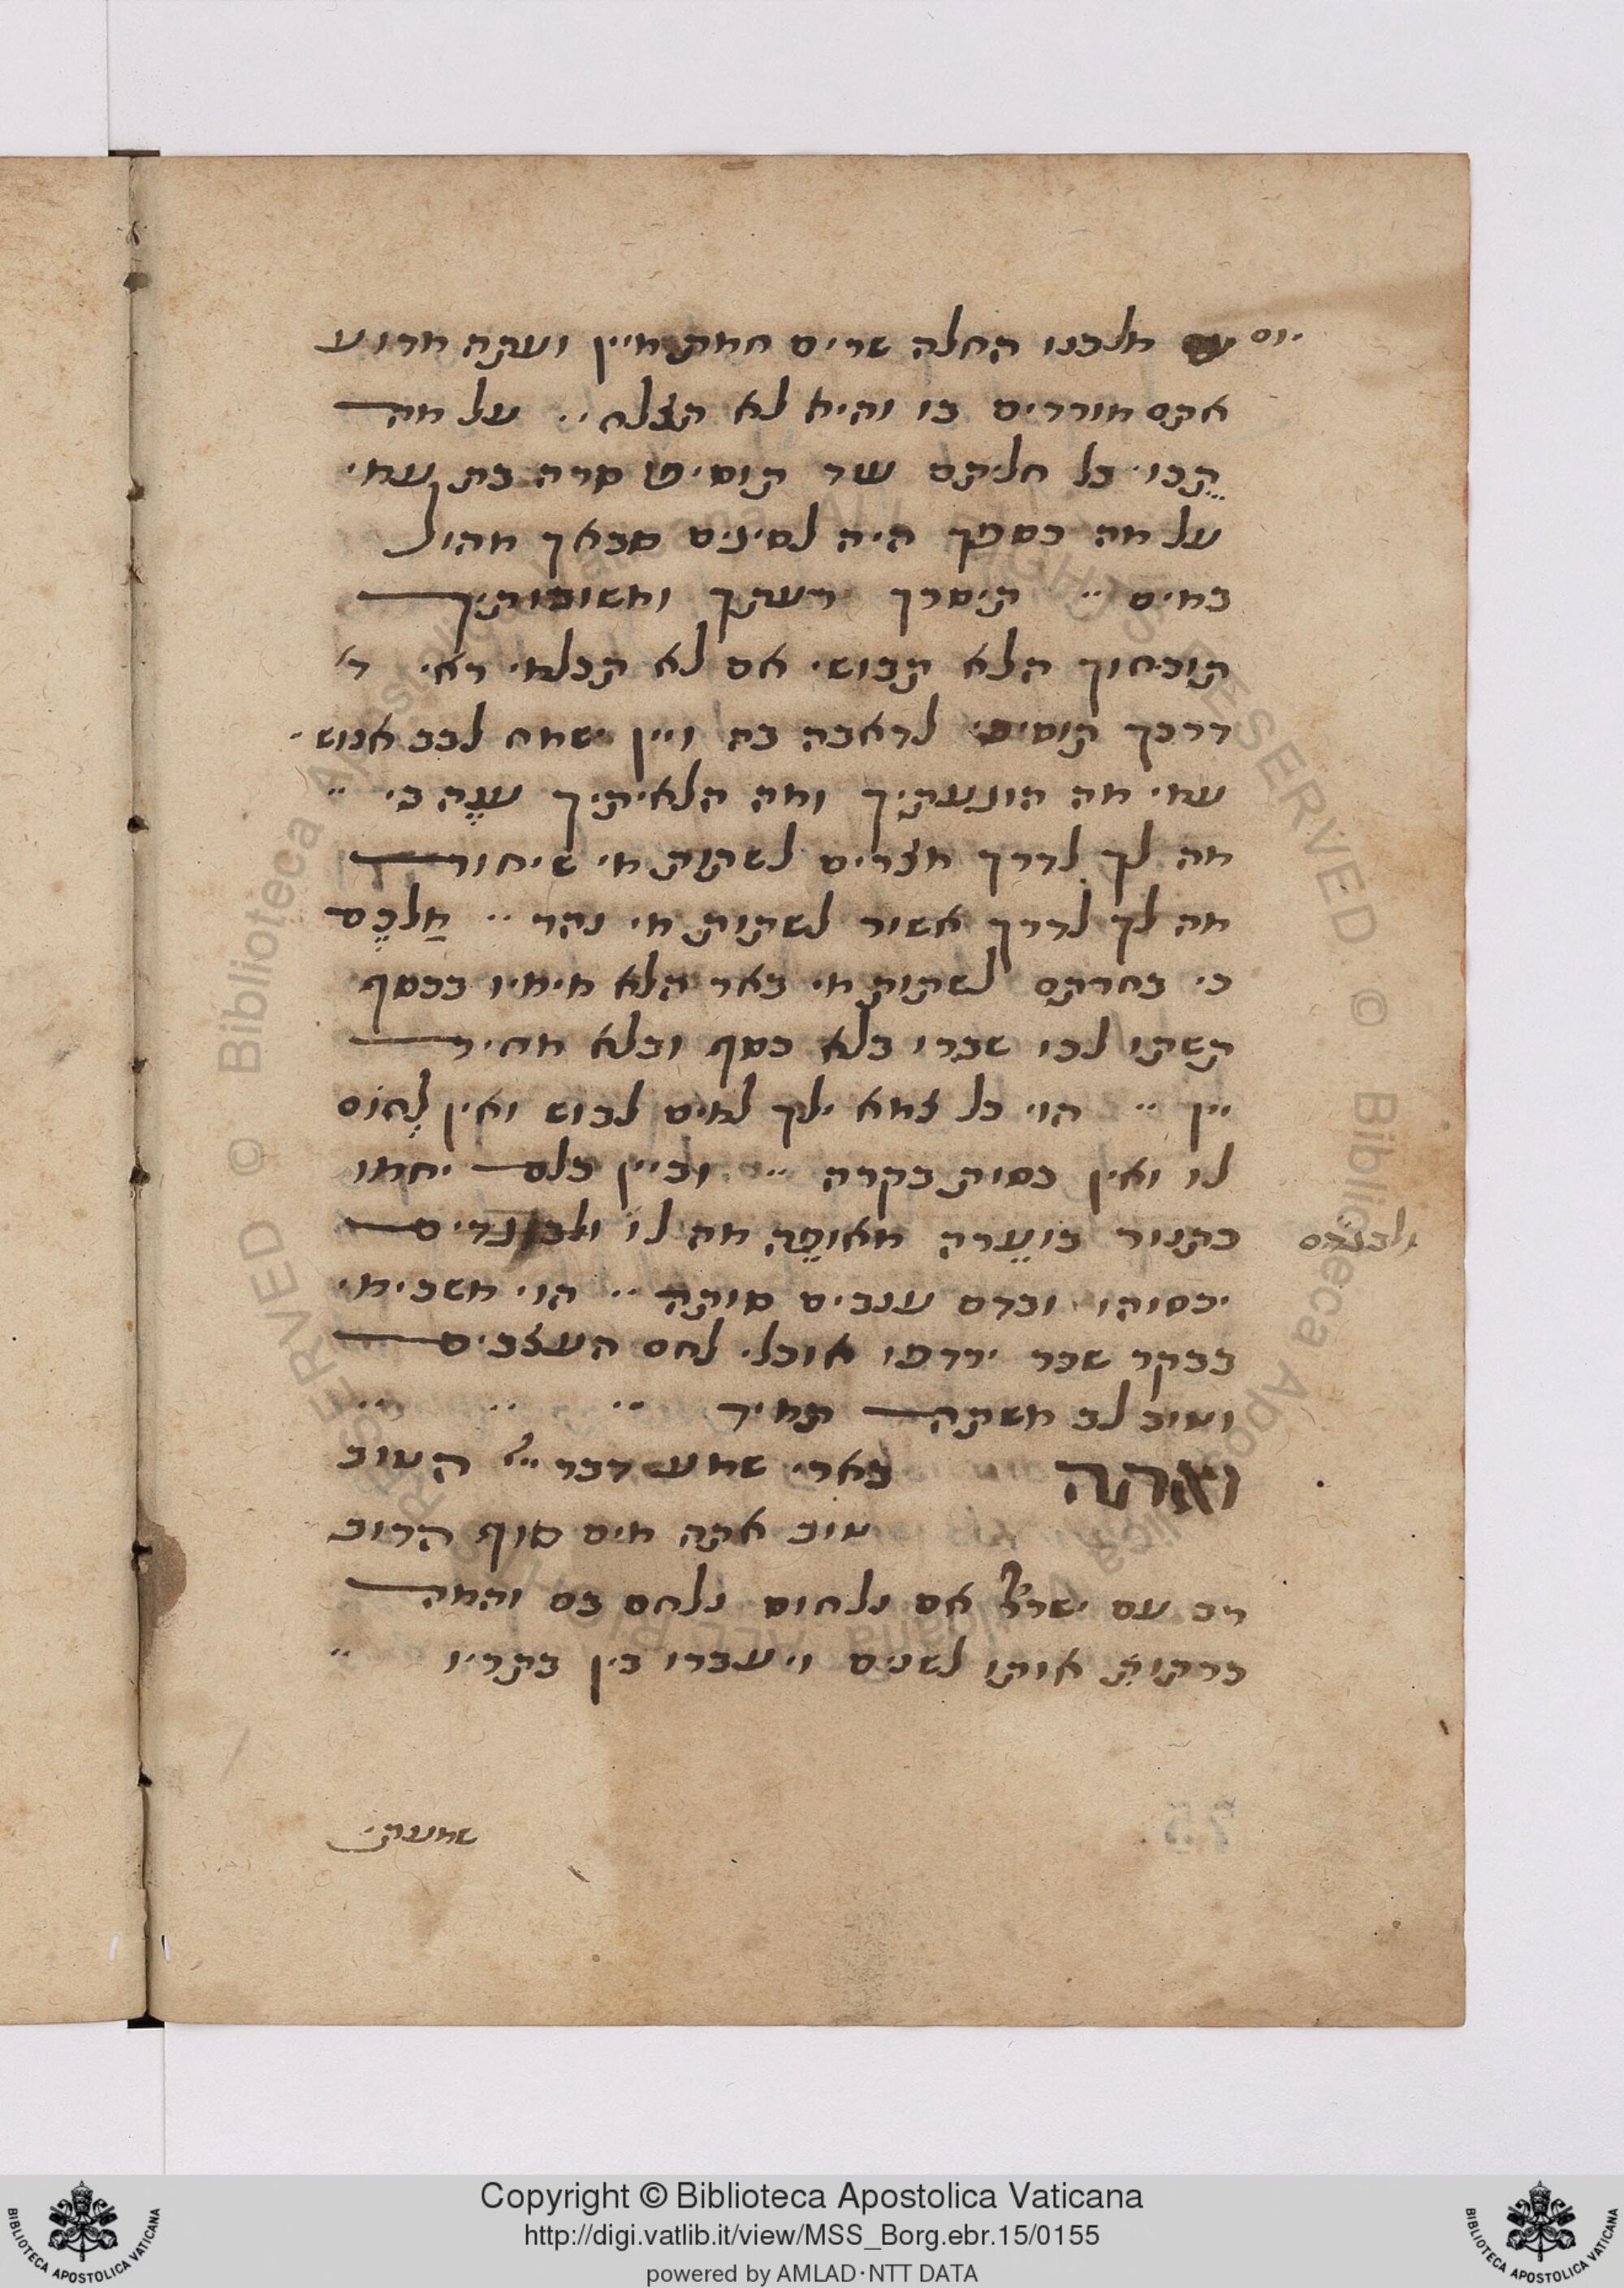 יום מלכנו החלה שרים חמת מיין ועתה מדוע
אתם מורדים בו והיא לא תצלח .. על מה
תכו כל חליתם עוד תוסיפו סרה בת עמי
על מה כספך היה לסיגים סבאך מהול
במים .. תיסרך רעתך ומשובותיך
תוכחוך הלא תבושי אם לא תכלמי ראי ר׳
דרכך תוסיפי לדאבה בה ויין ישמח לבב אנוש
עמי מה הוגעתיך ומה הלאיתיך ענה בי ..
מה לך לדרך מצרים לשתות מי שיחור
מה לך לדרך אשור לשתות מי נהר .. מלכם
כי בחרתם לשתות מי באר הלא מימיו בכסף
תשתו לכו שברו בלא כסף ובלא מחיר
יין .. הוי כל צמא ילך למים לבוש ואין לחום
לו ואין כסות בקרה .. וביין כלם יחמו
כתנור בוערה מאופה מה לו ולבגדים
ולבגדים
יכסוהו ובדם ענבים סותה .. הוי משכימי
בבקר שכר ירדפו אוכלי לחם העצבים
וטוב לב משתה תמיד .. .. ..
ואתה בארי שמע דבר ייי הטוב
טוב אתה מים סוף הרוב
רב עם ישראל אם נלחום נלחם בם והמה
כרתות אותו לשנים ויעברו בין בתריו ..
שמעתי